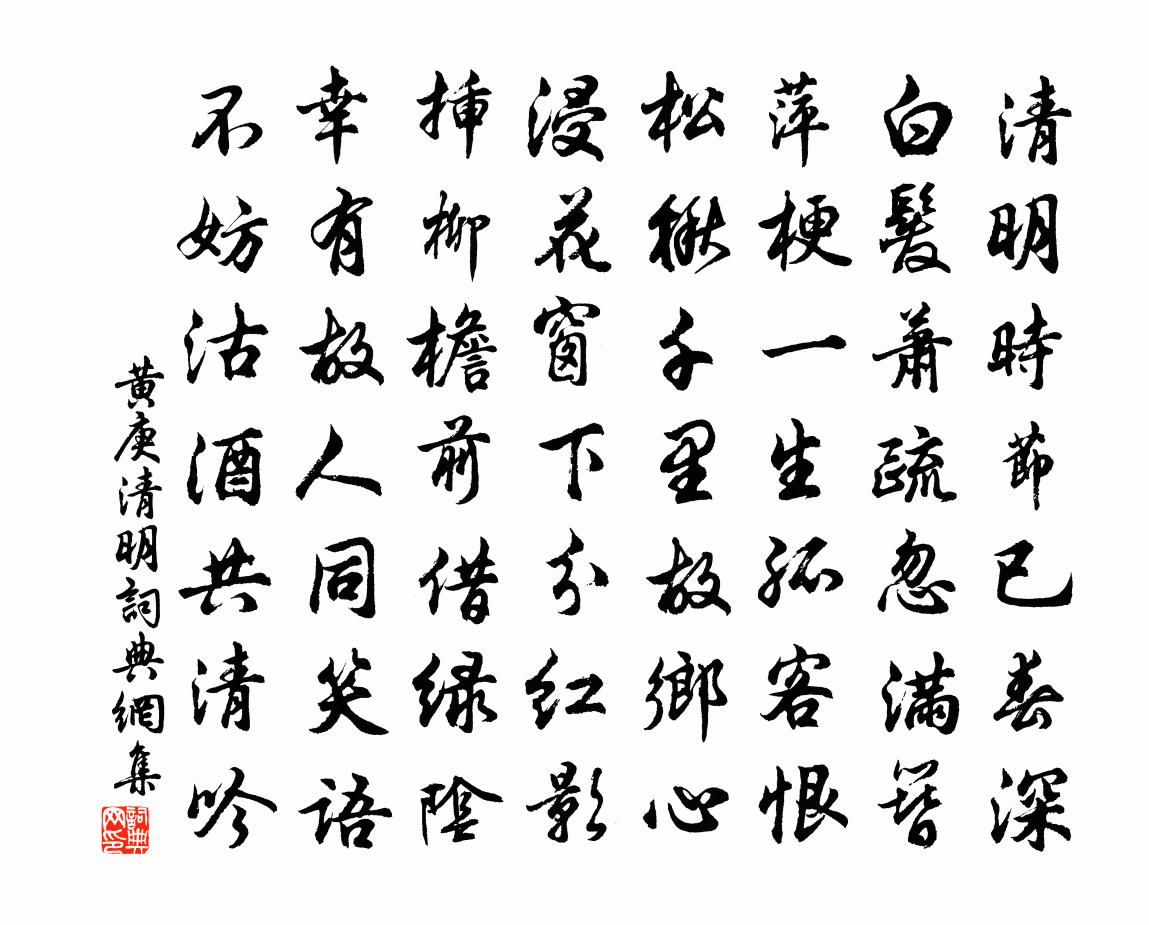 清明時節已春深
白髮蕭疏忽滿簪
萍梗一生孤客恨
松楸千里故鄉心
浸花窗下分紅影
挿柳檐前借緑陰
幸有故人同笑語
不妨沽酒共清吟
黄庚清明詞典網集
詞典网印